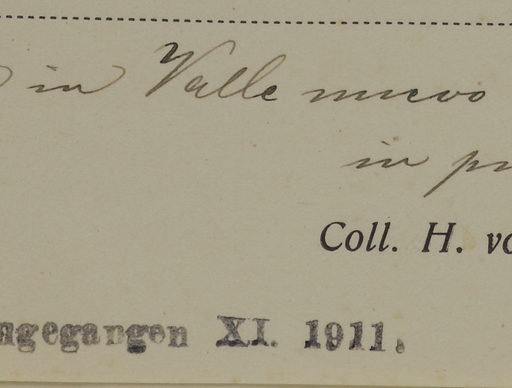 in Valle nuevo
in
Coll. H.
ngegangen XI. 1911.